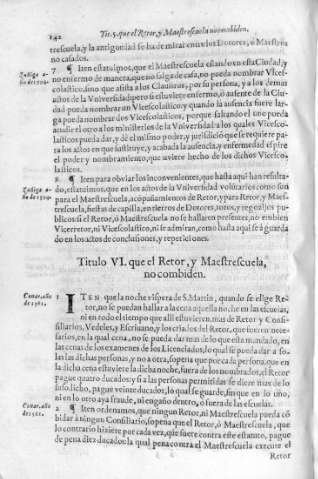 142 Tit. 5. que el Retor, y Maestrescuela no combiden.
trescuela, y la antiguedad se ha de mirar en los Dotores, o Maestros
no casados.
¶ Iten estatuimos, que el Maestrescuela estando en esta Ciudad, y
no enfermo de manera, que no salga de casa, no pueda nombrar Vices-
colastico, sino que asista a los Claustros, por su persona, y a los demas
actos de la Universidad, pero si estuviere enfermo, o ausente de la Ciu-
dad pueda nombrar un Vicescolastico, y quando la ausencia fuere lar-
ga pueda nombrar dos Vicescolasticos, porque faltando el uno pueda
acudir el otro a los ministerios de la Universidad a los quales Vicesco-
lasticos pueda dar, y dè el mismo poder, y jurisdicion que se requiere pa-
ra los actos en que sustituye, y acabada la ausencia, y enfermedad espire
el poder y nombramiento, que uviere hecho de los dichos Vicesco-
lasticos.
¶ Iten para obviar los inconvenientes, que hasta aqui han resulta-
do, estatuimos, que en los actos de la Universidad voluntarios como son
para el Maestrescuela, acompañamientos de Retor, y para Retor y Maes-
trescuela, fiestas de capilla, entierros de Dotores, toros, y regozijos pu-
blicos si el Retor, ò Maestrescuela no se hallaren presentes, no embien
Vicerretor, ni Vicescolastico, ni se admitan, como hasta aqui se à guarda
do en los actos de conclusiones, y repeticiones.
Titulo VI. que el Retor, y Maestrescuela,
no combiden.
Covar. año de 1561. 1 ITEN que la noche vispera de S. Martin, quando se elige Re-
tor, no se puedan hallar a la cena aquella noche en las escuelas,
ni en todo el tiempo que alli estuvieren, mas de Retor y Consi-
siliarios, Vedeles, y Escrivano, y los criados del Retor, que fueren nece-
sarios, en la qual cena, no se pueda dar mas de lo que esta mandado, en
las cenas de los examenes de los Licenciados, lo qual se pueda dar a so-
las las dichas personas, y no a otra, sopena que por cada persona, que en
la dicha cena estuviere la dicha noche, fuera de los nombrados, el Retor
pague quatro ducados y si a las personas permitidas se diere mas de lo
suso dicho, pague veinte ducados, lo qual se guarde, sin que en lo uno,
ni en lo otro aya fraude, ni engaño dentro, o fuera de las escuelas.
Covar. año de 1561. 2 ¶ Iten ordenamos, que ningun Retor, ni Maestrescuela pueda cō
bidar à ningun Consiliario, sopena que el Retor, ò Maestrescuela, que
lo contrario hiziere por cada vez, que fuere contra este estatuto, pague
de pena diez ducados la qual pena contra el Maestrescuela execute el
Retor